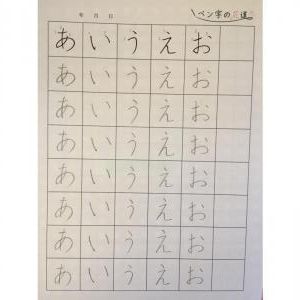 年 月 日
ペン字の花道
あ い う え お
あ い う え お
あ い う え お
あ い う え お
あ い う え お
あ い う え お
あ い う え お
あ い う え お